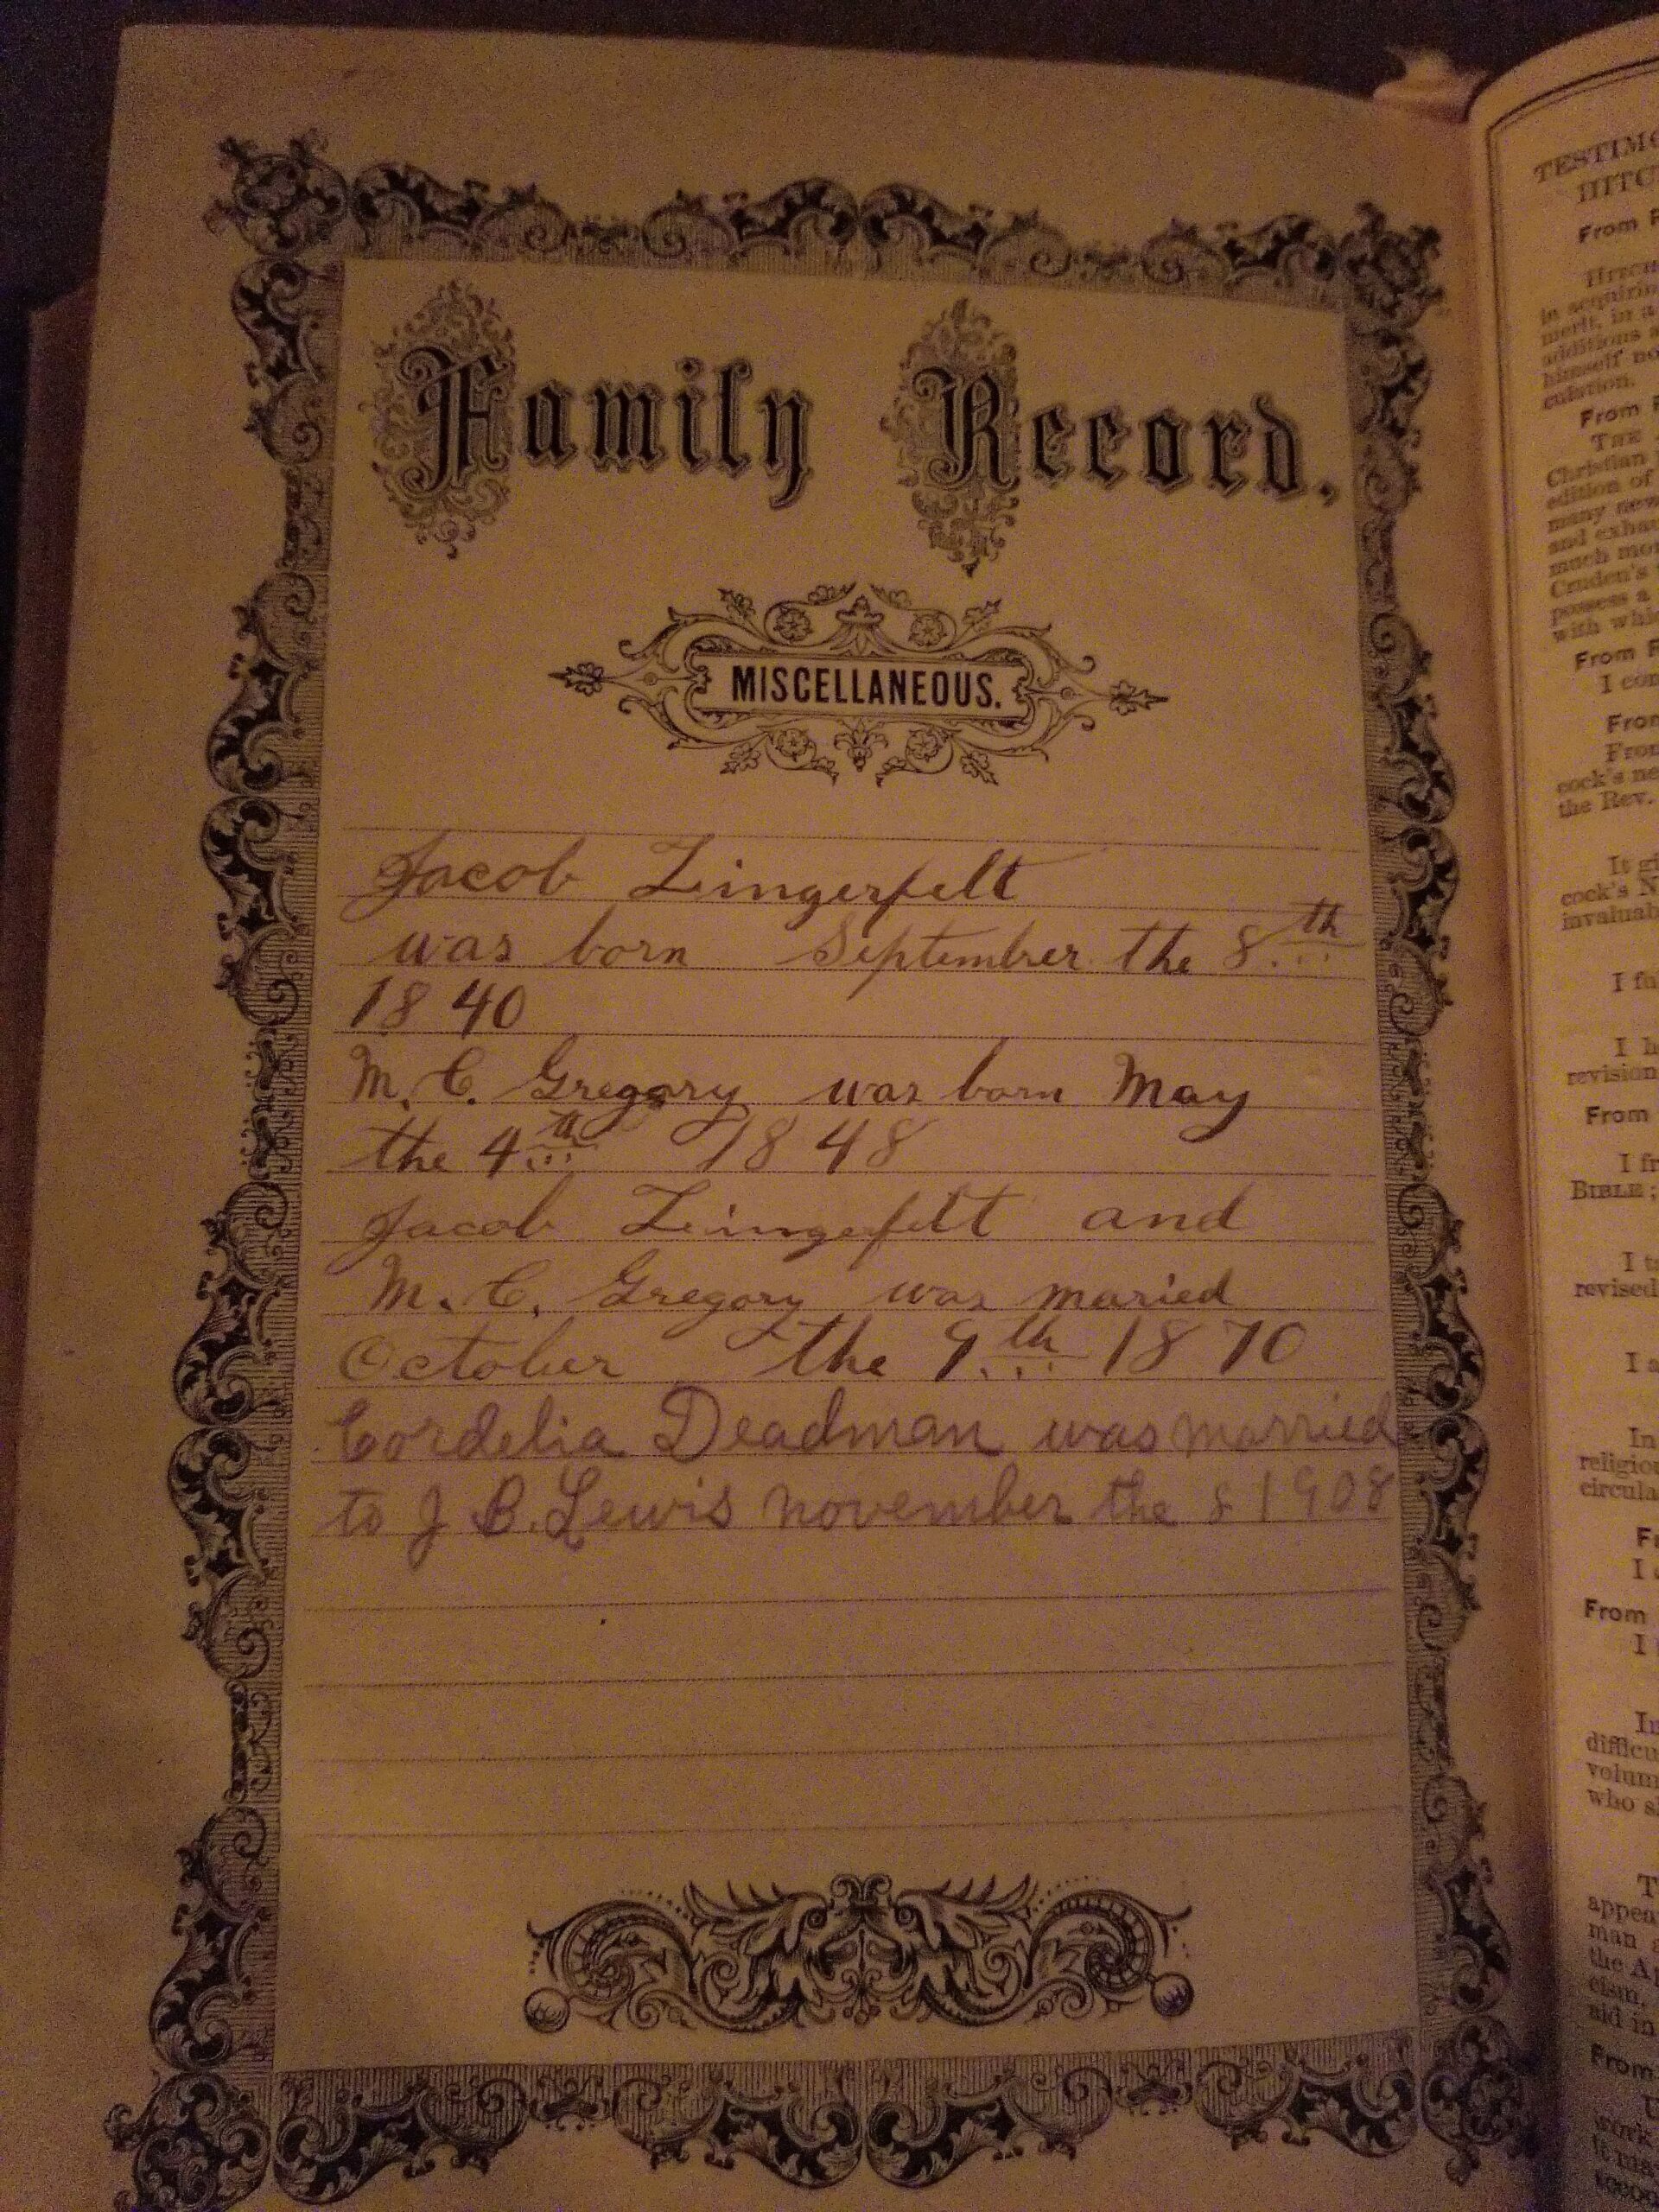 Family Record.
MISCELLANEOUS.
Jacob Lingerfelt
was born September the 8th
1840
M. C. Gregory was born May
the 4th 1848
Jacob Lingefelt and
M. C. Gregory was maried
October the 9th 1870
Cordelia Deadman was married
to J B. Lewis november the 8 1908
TESTIMO
HITC
From
in acquirin
merit, in a
additions a
himself no
culation.
From
THE
Christian
edition of
many new
and exhau
much mor
Cruden's
possess a
with whic
From
I con
From
From
cock's ne
the Rev.
It gi
cock's N
invaluab
I fu
I h
revision
From
I fr
BIBLE;
I t
revised
I a
In
religiou
circula
I
From
I
In
difficu
volum
who s
T
appea
man a
the Ap
cism,
aid in
From
work